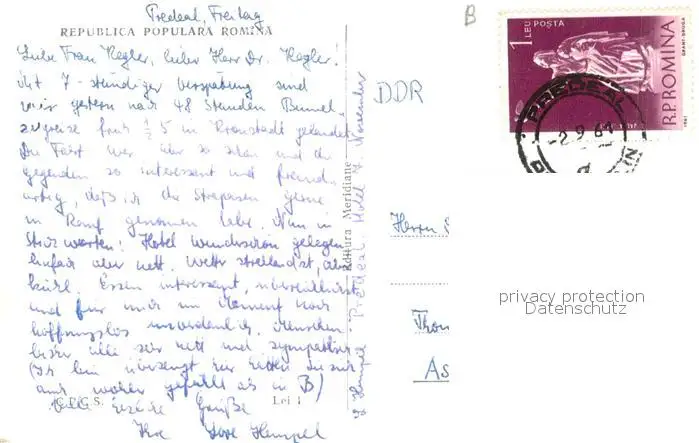 Predeal, Freitag
REPUBLICA POPULARA ROMINA
Liebe Frau Kegler, lieber Herr Dr. Kegler!
Mit 7-stündiger Verspätung sind
wir gestern nach 48 Stunden Bummel-
zugreise früh ½ 5 in Kronstadt gelandet.
Die Fahrt war aber so schön und die
Gegenden so interessant und fremd-
artig, daß ich die Strapazen gerne
in Kauf genommen habe. Nun in
Hotel wunderschön gelegen,
einfach aber nett. Wetter strahlendst, aber
kühl. Essen interessant,
und für mich im Moment noch
hoffnungslos unverdaulich. Menschen
bisher alle sehr nett und sympathisch
(Ich bin überzeugt
gefällt als in B)
Viele Grüße
Ihre Hempel
C.P.C.S.
Lei 1
Editura Meridiane
Hempel Predeal, Hotel 7. November
B
DDR
1 LEU POSTA
R.P.ROMINA
PREDEAL
-2.9.61
Herrn
Thom
As
privacy protection
Datenschutz